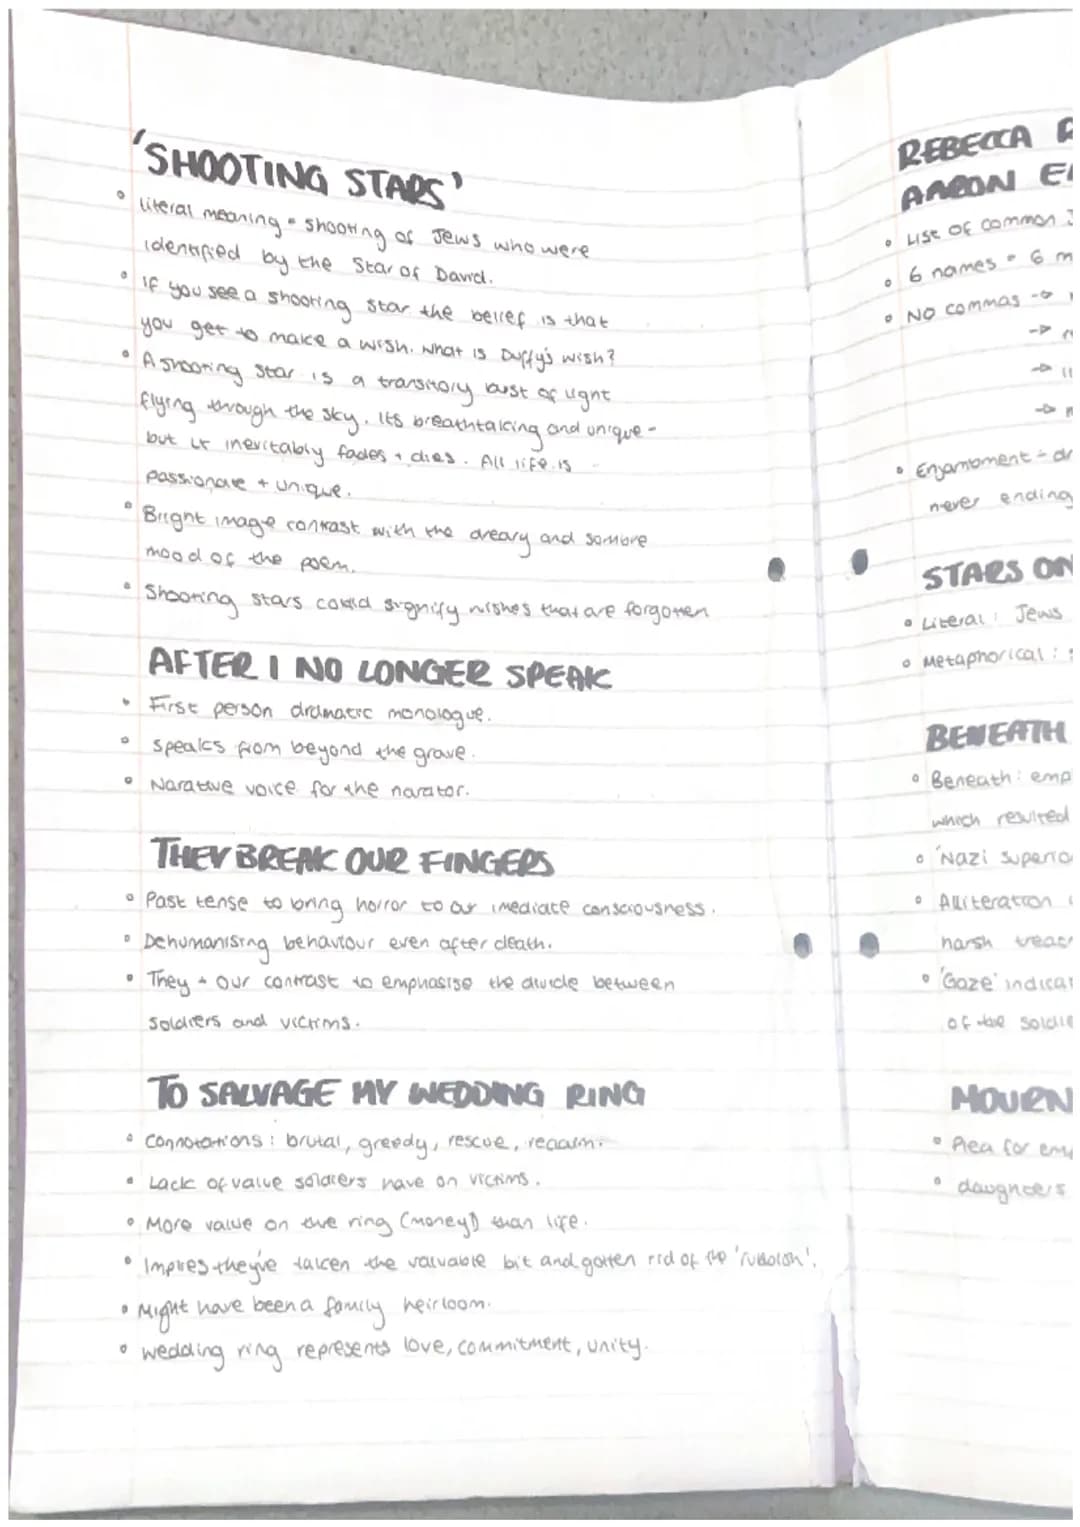 'SHOOTING STARS'
• Literal meaning = shooting of Jews who were
identified by the Star of David.
• If you see a shooting star the belief is that
you get to make a wish. What is Duffy's wish?
• A shooting star is a transitory bust of light
flying through the sky. Its breathtaking and unique -
but it inevitably fades + dies. All life is
passionate + unique.
• Bright image contrast with the dreary and sombre
mood of the poem.
• Shooting stars could signify wishes that are forgotten
AFTER I NO LONGER SPEAK
• First person dramatic monologue.
• Speaks from beyond the grave.
• Narative voice for the narator.
THEY BREAK OUR FINGERS
• Past tense to bring horror to our imediate consciousness.
• Dehumanising behaviour even after death.
• They + Our contrast to emphasise the divide between
soldiers and victims.
TO SALVAGE MY WEDDING RING
• Connotations: brutal, greedy, rescue, reclaim.
• Lack of value soldiers have on victims.
• More value on the ring (money) than life.
• Implies they've taken the valuable bit and gotten rid of the 'rubbish'.
• Might have been a family heirloom.
• wedding ring represents love, commitment, unity.
REBECCA R
AARON E
• List of common J
• 6 names = 6 m
• No commas ->
->
->
->
• Enjambment -
never ending
STARS ON
• Literal: Jews
• Metaphorical:
BENEATH
• Beneath: emp
which resulted
• 'Nazi
• Alliteration
harsh
• 'Gaze' indicat
of the soldie
MOURN
• Plea for
• daughters